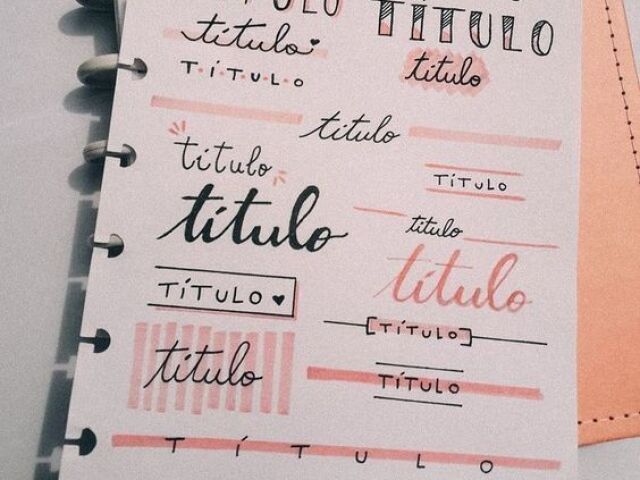 TÍTULO
título
T·Í·T·U·L·O
título
título
título
TÍTULO
título
título
título
TÍTULO ♥
[TÍTULO]
título
TÍTULO
T Í T U L O